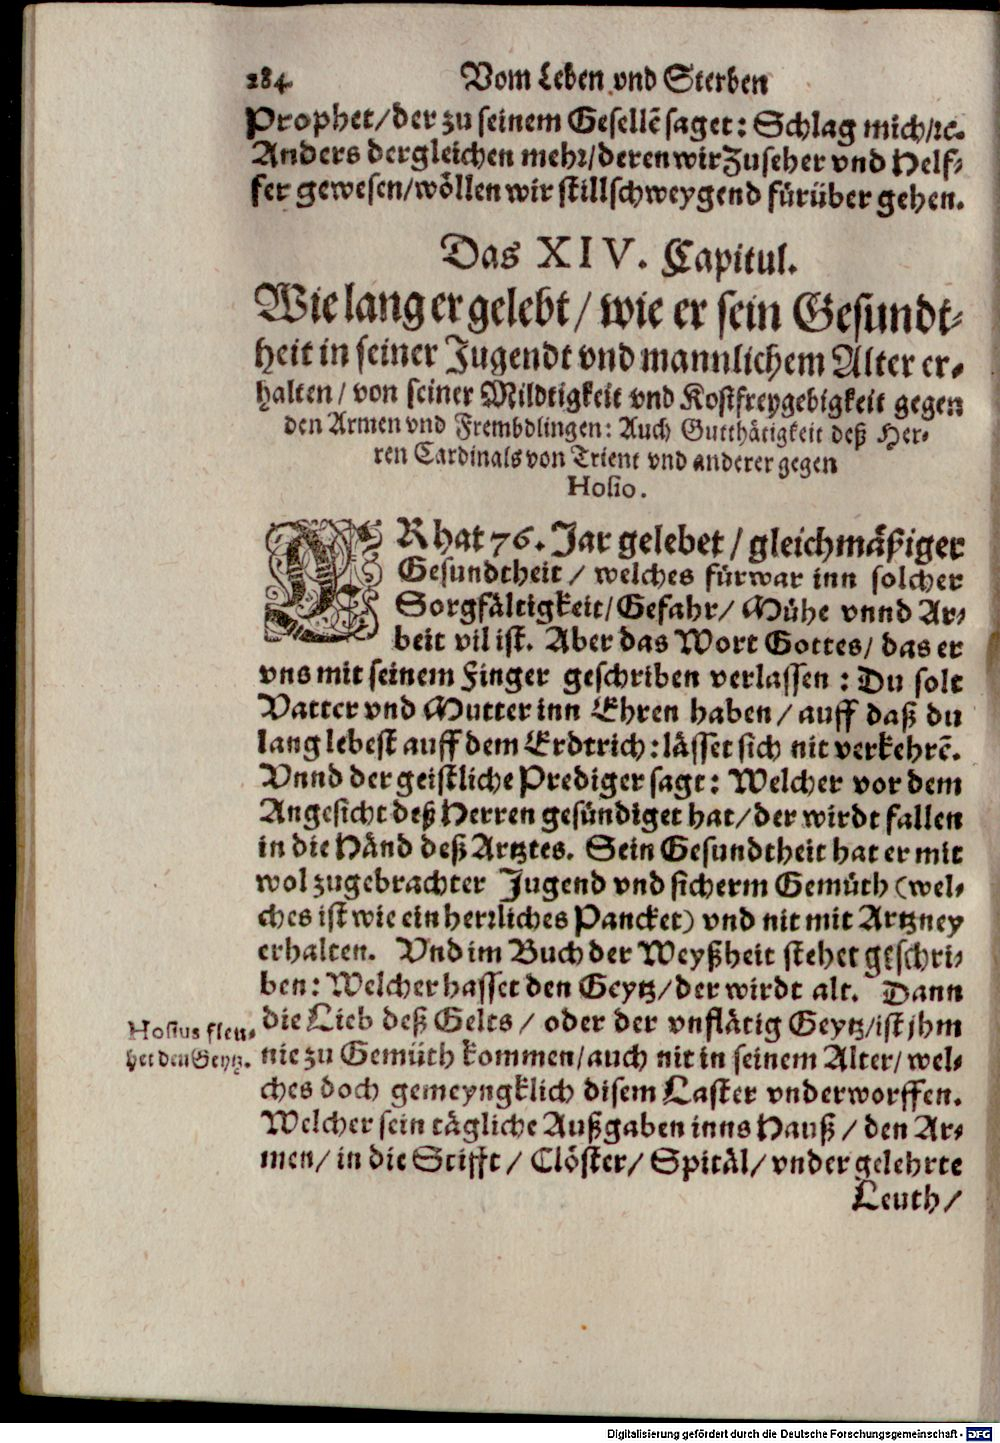 284. Vom Leben vnd Sterben
Prophet/der zu seinem Gesellẽ saget: Schlag mich/ꝛc.
Anders dergleichen mehr/deren wir Zuseher vnd Helf-
fer gewesen/wöllen wir stillschweygend fürüber gehen.
Das XIV. Capitul.
Wie lang er gelebt / wie er sein Gesundt-
heit in seiner Jugendt vnd mannlichem Alter er-
halten / von seiner Mildtigkeit vnd Kostfreygebigkeit gegen
den Armen vnd Frembdlingen: Auch Gutthätigkeit deß Her-
ren Cardinals von Trient vnd anderer gegen
Hosio.
ER hat 76. Jar gelebet / gleichmäßiger
Gesundtheit / welches fürwar inn solcher
Sorgfältigkeit/ Gefahr/ Mühe vnnd Ar-
beit vil ist. Aber das Wort Gottes/ das er
vns mit seinem Finger geschriben verlassen : Du solt
Vatter vnd Mutter inn Ehren haben / auff daß du
lang lebest auff dem Erdtrich: lässet sich nit verkehrẽ.
Vnnd der geistliche Prediger sagt: Welcher vor dem
Angesicht deß Herren gesündiget hat/ der wirdt fallen
in die Händ deß Artztes. Sein Gesundtheit hat er mit
wol zugebrachter Jugend vnd sicherm Gemüth (wel-
ches ist wie ein herrliches Pancket) vnd nit mit Artzney
erhalten. Vnd im Buch der Weyßheit stehet geschri-
ben: Welcher hasset den Geytz/ der wirdt alt. Dann
die Lieb deß Gelts / oder der vnflätig Geytz/ist jhm
nie zu Gemüth kommen/auch nit in seinem Alter/ wel-
ches doch gemeyngklich disem Laster vnderworffen.
Welcher sein tägliche Außgaben inns Hauß / den Ar-
men/ in die Stifft / Clöster/ Spitäl/ vnder gelehrte
Leuth/
Hosius fleu-
het den Geytz.
Digitalisierung gefördert durch die Deutsche Forschungsgemeinschaft - DFG